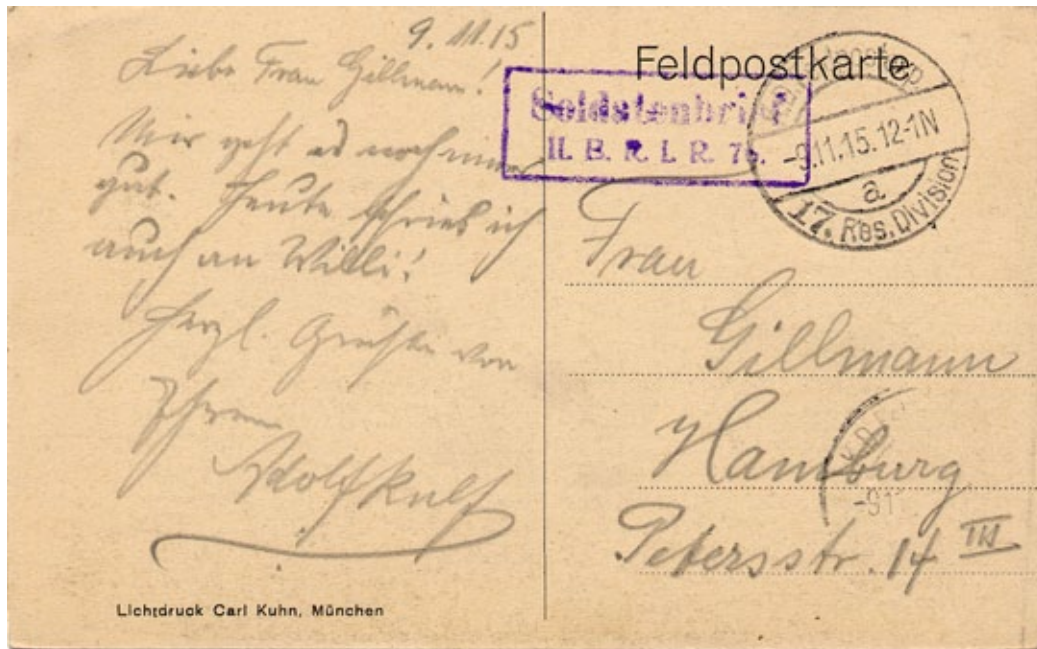 9.11.15
Liebe Frau Gillmann!
Mir geht es noch immer
gut. Heute schrieb ich
auch an Willi!
Herzl. Grüße von
Ihrem
Adolf
Lichtdruck Carl Kuhn, München
Feldpostkarte
Soldatenbrief
II. B. R. I. R. 76.
-9.11.15.12-1N
a
17. Res. Division
Frau
Gillmann
Hamburg
Petersstr. 14 III
-911